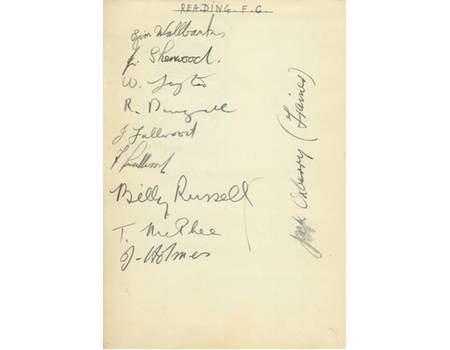 READING F.C.
Jim Wallbanks
J. Sherwood.
W. Layton
R. Dougall
J. Fullwood
J Fullwood
Billy Russell
T. McPhee
J. Holmes
Jack (Trainer)